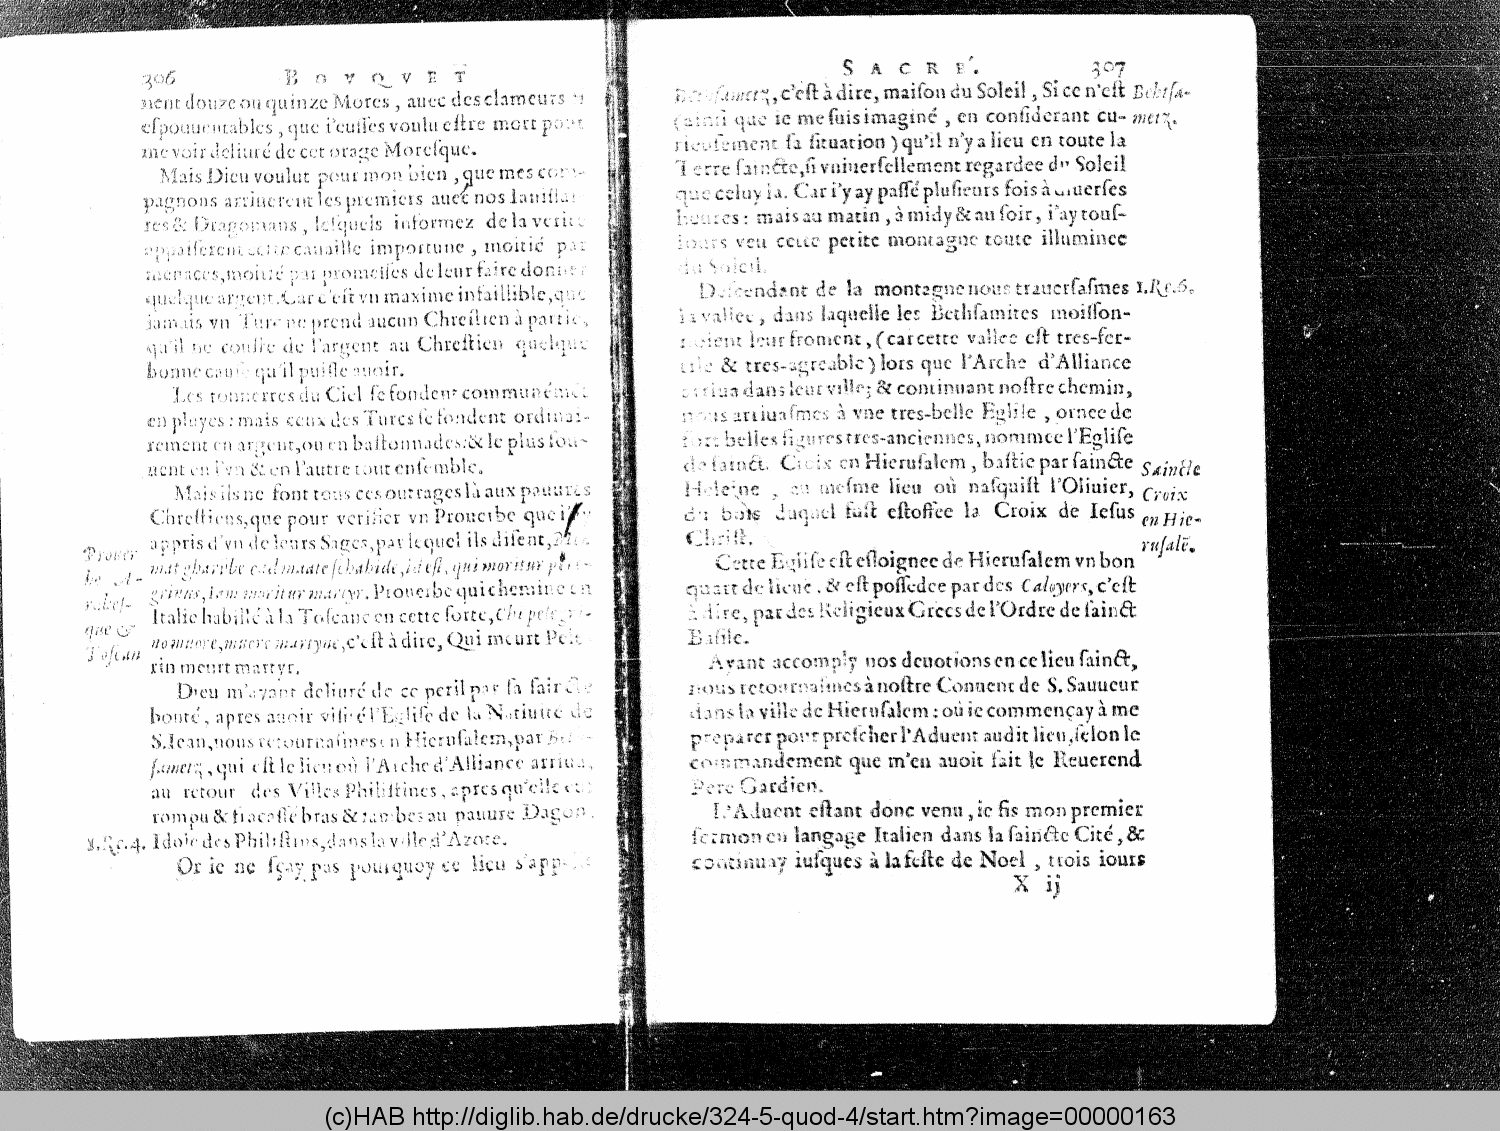 306 BOVQVET
nent douze ou quinze Mores, auec des clameurs si
espouuentables, que i'eusses voulu estre mort pour
me voir deliuré de cet orage Moresque.
Mais Dieu voulut pour mon bien, que mes com-
pagnons arriuerent les premiers auec nos Ianissai-
res & Dragomans, lesquels informez de la verité
appaiserent cette canaille importune, moitié par
menaces, moitié par promesses de leur faire donner
quelque argent. Car c'est vn maxime infaillible, que
iamais vn Turc ne prend aucun Chrestien à partie,
qu'il ne couste de l'argent au Chrestien quelque
bonne cause qu'il puisse auoir.
Les tonnerres du Ciel se fondent communémēt
en pluyes: mais ceux des Turcs se fondent ordinai-
rement en argent, ou en bastonnades: & le plus sou-
uent en l'vn & en l'autre tout ensemble.
Mais ils ne font tous ces outrages là aux pauures
Chrestiens, que pour verifier vn Prouerbe que
appris d'vn de leurs Sages, par lequel ils disent,
Prouer
id est, qui moritur
rabes-
martyr. Prouerbe qui chemine en
Italie habillé à la Toscane en cette sorte,
que &
c'est à dire, Qui meurt Pele-
Toscan
rin meurt martyr.
Dieu m'ayant deliuré de ce peril par sa saincte
bonté, apres auoir visité l'Eglise de la Natiuité de
S. Iean, nous retournasmes en Hierusalem, par Beth-
sametz, qui est le lieu où l'Arche d'Alliance arriua,
au retour des Villes Philistines, apres qu'elle eut
rompu & fracassé bras & iambes au pauure Dagon,
1. Re. 4. Idole des Philistins, dans la ville d'Azote.
Or ie ne sçay pas pourquoy ce lieu s'appelle
SACRE'. 307
Bethsametz, c'est à dire, maison du Soleil, Si ce n'est Bethsa-
(ainsi que ie me suis imaginé, en considerant cu- metz.
rieusement sa situation) qu'il n'y a lieu en toute la
Terre saincte, si vniuersellement regardee du Soleil
que celuy la. Car i'y ay passé plusieurs fois à diuerses
heures: mais au matin, à midy & au soir, i'ay tous-
iours veu cette petite montagne toute illuminee
du Soleil.
Descendant de la montagne nous trauersasmes 1. Re. 6.
la vallee, dans laquelle les Bethsamites moisson-
noient leur froment, (car cette vallee est tres-fer-
tile & tres-agreable) lors que l'Arche d'Alliance
arriua dans leur ville; & continuant nostre chemin,
nous arriuasmes à vne tres-belle Eglise, ornee de
fort belles figures tres-anciennes, nommee l'Eglise
de sainct. Croix en Hierusalem, bastie par saincte Saincte
Heleine, au mesme lieu où nasquist l'Oliuier, Croix
du bois duquel fust estoffee la Croix de Iesus en Hie-
Christ. rusalē.
Cette Eglise est esloignee de Hierusalem vn bon
quart de lieue, & est possedee par des Caloyers, c'est
à dire, par des Religieux Grecs de l'Ordre de sainct
Basile.
Ayant accomply nos deuotions en ce lieu sainct,
nous retournasmes à nostre Conuent de S. Sauueur
dans la ville de Hierusalem: où ie commençay à me
preparer pour prescher l'Aduent audit lieu, selon le
commandement que m'en auoit fait le Reuerend
Pere Gardien.
L'Aduent estant donc venu, ie fis mon premier
sermon en langage Italien dans la saincte Cité, &
continuay iusques à la feste de Noel, trois iours
X ij
(c)HAB http://diglib.hab.de/drucke/324-5-quod-4/start.htm?image=00000163